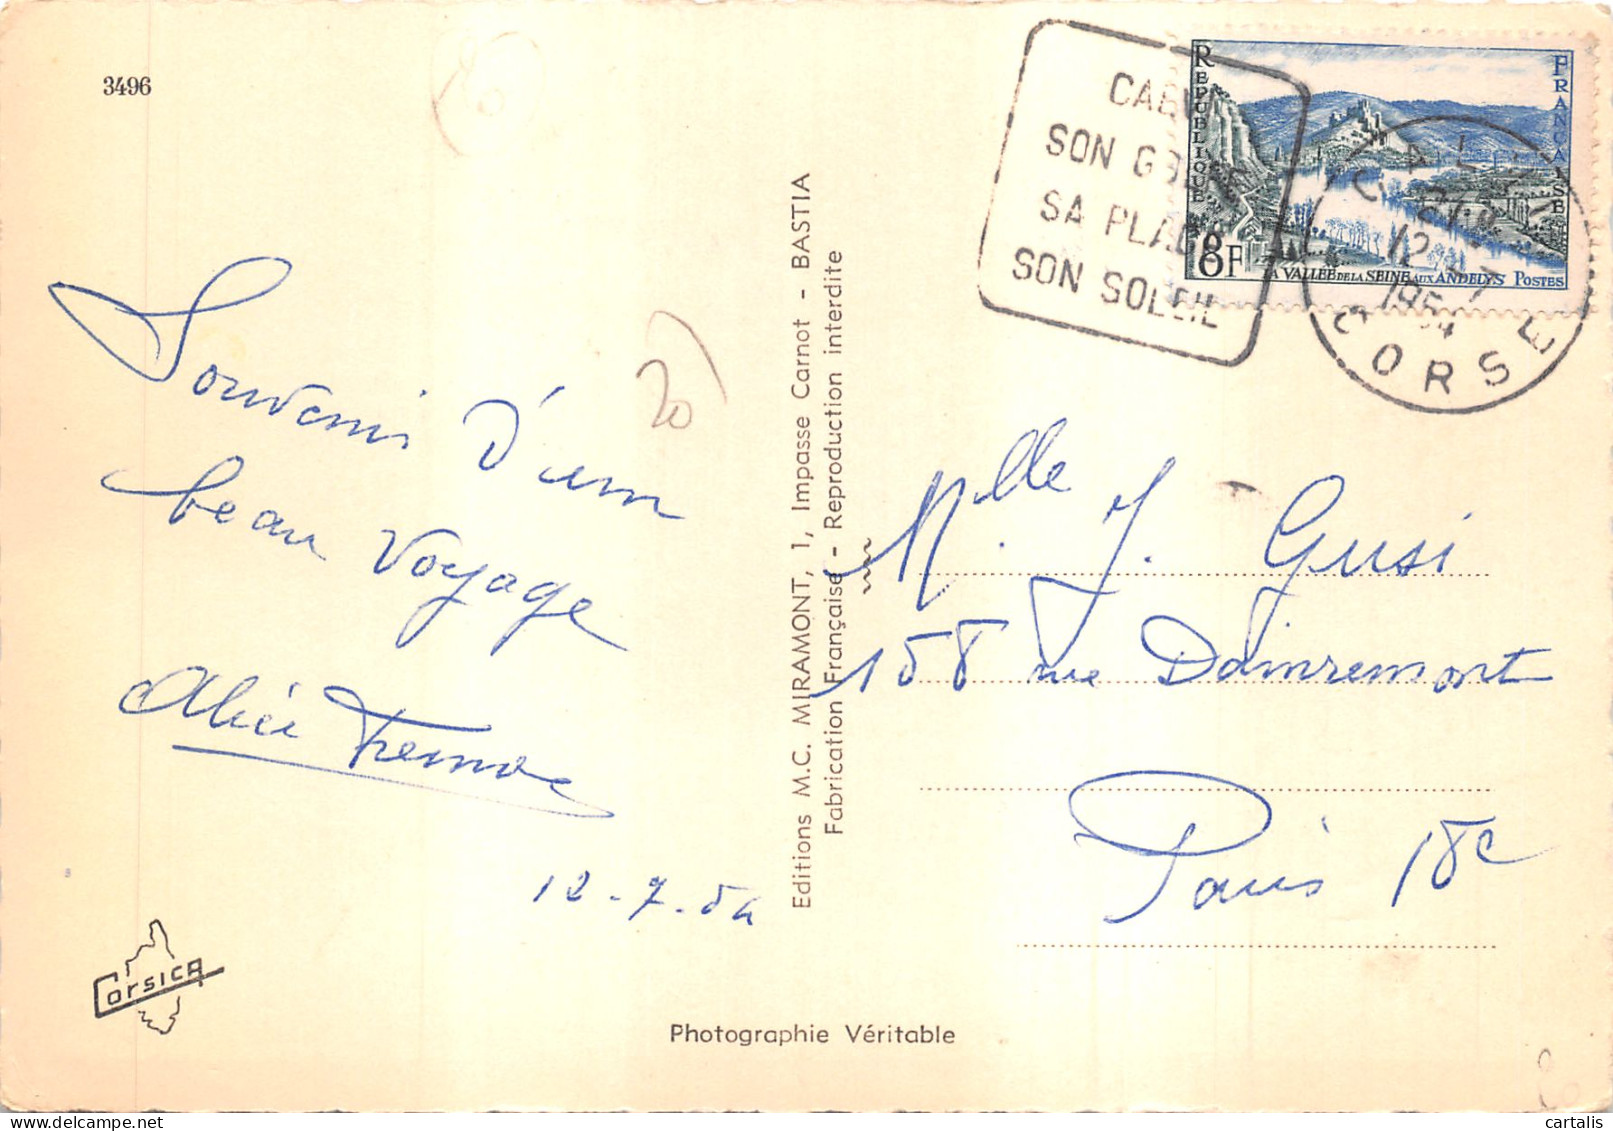 3496
Souvenir d'un
beau voyage
Alice
12.7.54
CORSICA
Photographie Véritable
Editions M.C. MIRAMONT, 1, Impasse Carnot - BASTIA
Fabrication Française - Reproduction interdite
SON
SA PLAGE
SON SOLEIL
REPUBLIQUE
FRANÇAISE
8F
LA VALLÉE DE LA SEINE AUX ANDELYS POSTES
CALVI
12-7
1954
CORSE
Mlle J. Gusi
158 rue Damremont
Paris 18e
cartalis